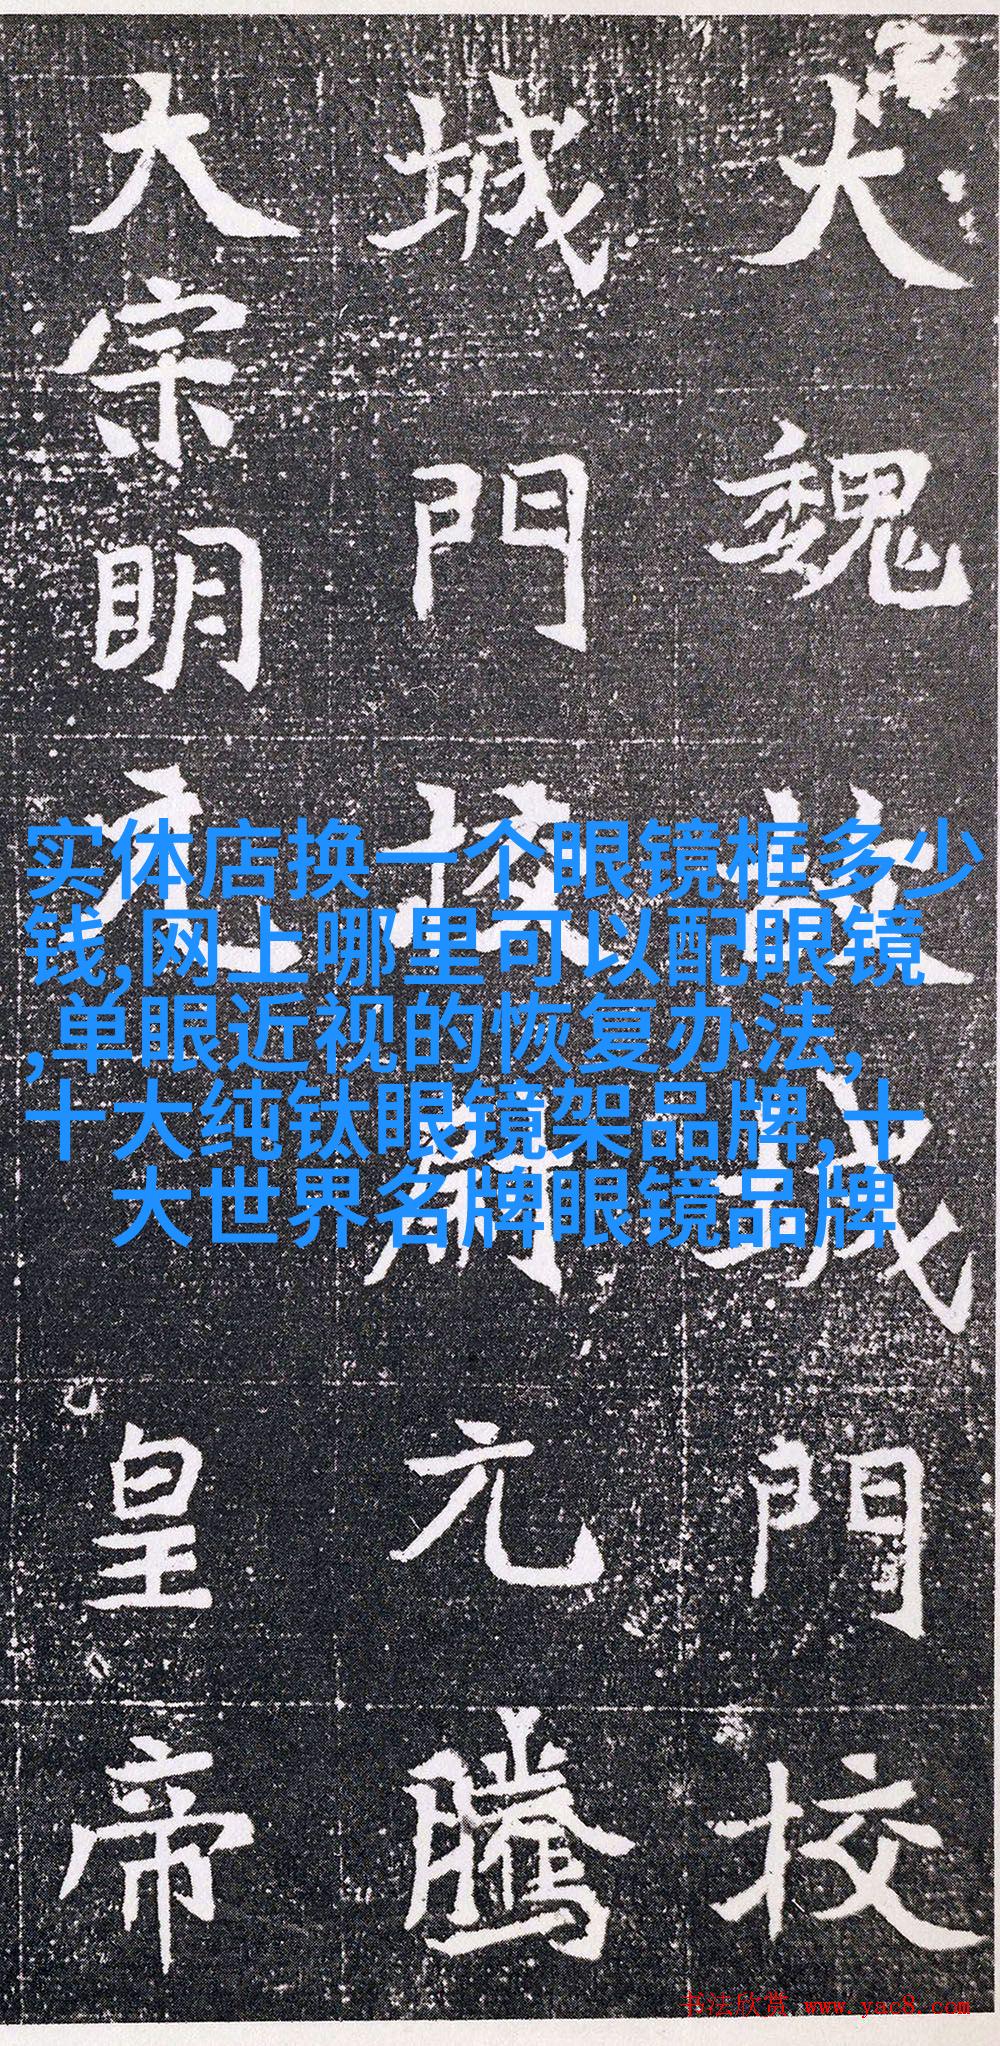 大魏故城門校
城門元騰
大宗明元皇帝
实体店换一个眼镜框多少
钱,网上哪里可以配眼镜
,单眼近视的恢复办法,
十大纯钛眼镜架品牌,十
大世界名牌眼镜品牌
书法欣赏 www.yac8.com